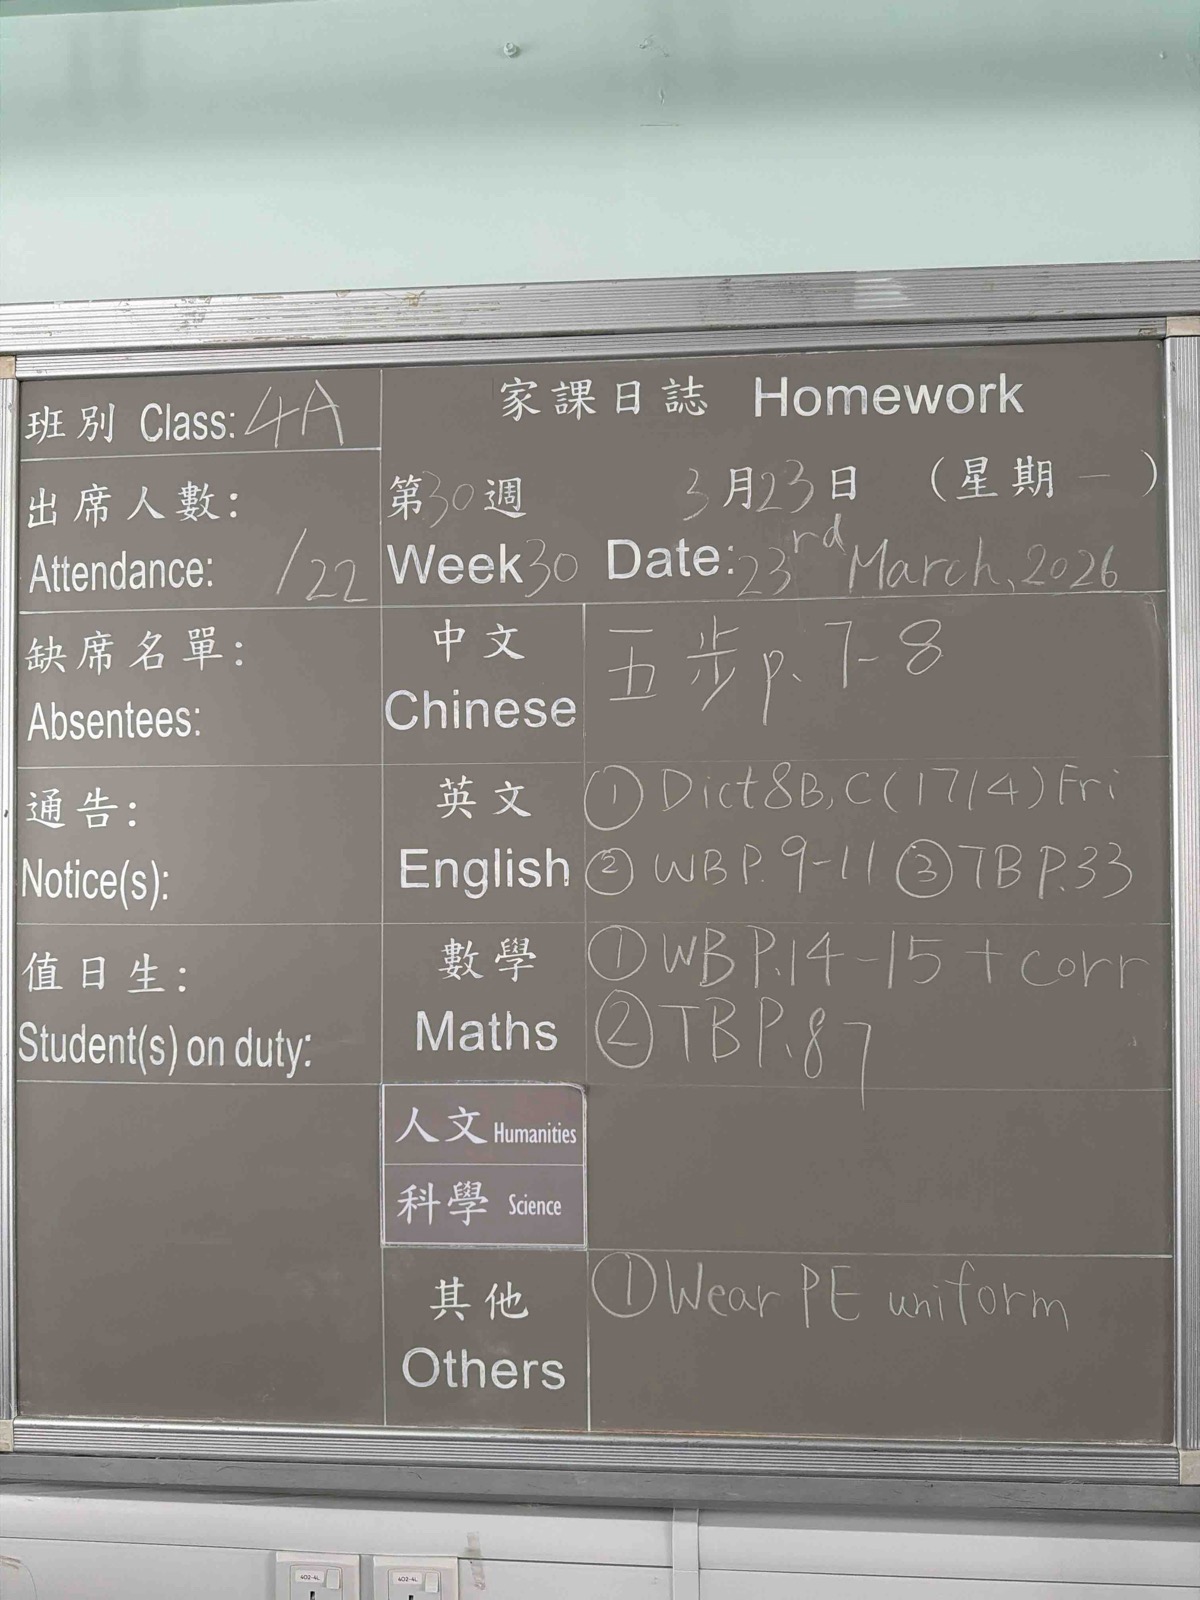 班別 Class: 4A
家課日誌 Homework
出席人數:
Attendance: /22
第30週 3月23日 (星期一)
Week30 Date: 23rd March, 2026
缺席名單:
Absentees:
中文
Chinese
五步 p. 7-8
通告:
Notice(s):
英文
English
① Dict8B,C(17/4)Fri
② WBP.9-11 ③ TBP.33
值日生:
Student(s) on duty:
數學
Maths
① WBP.14-15 + corr
② TBP.87
人文 Humanities
科學 Science
其他
Others
① Wear PE uniform
402-4L
402-4L